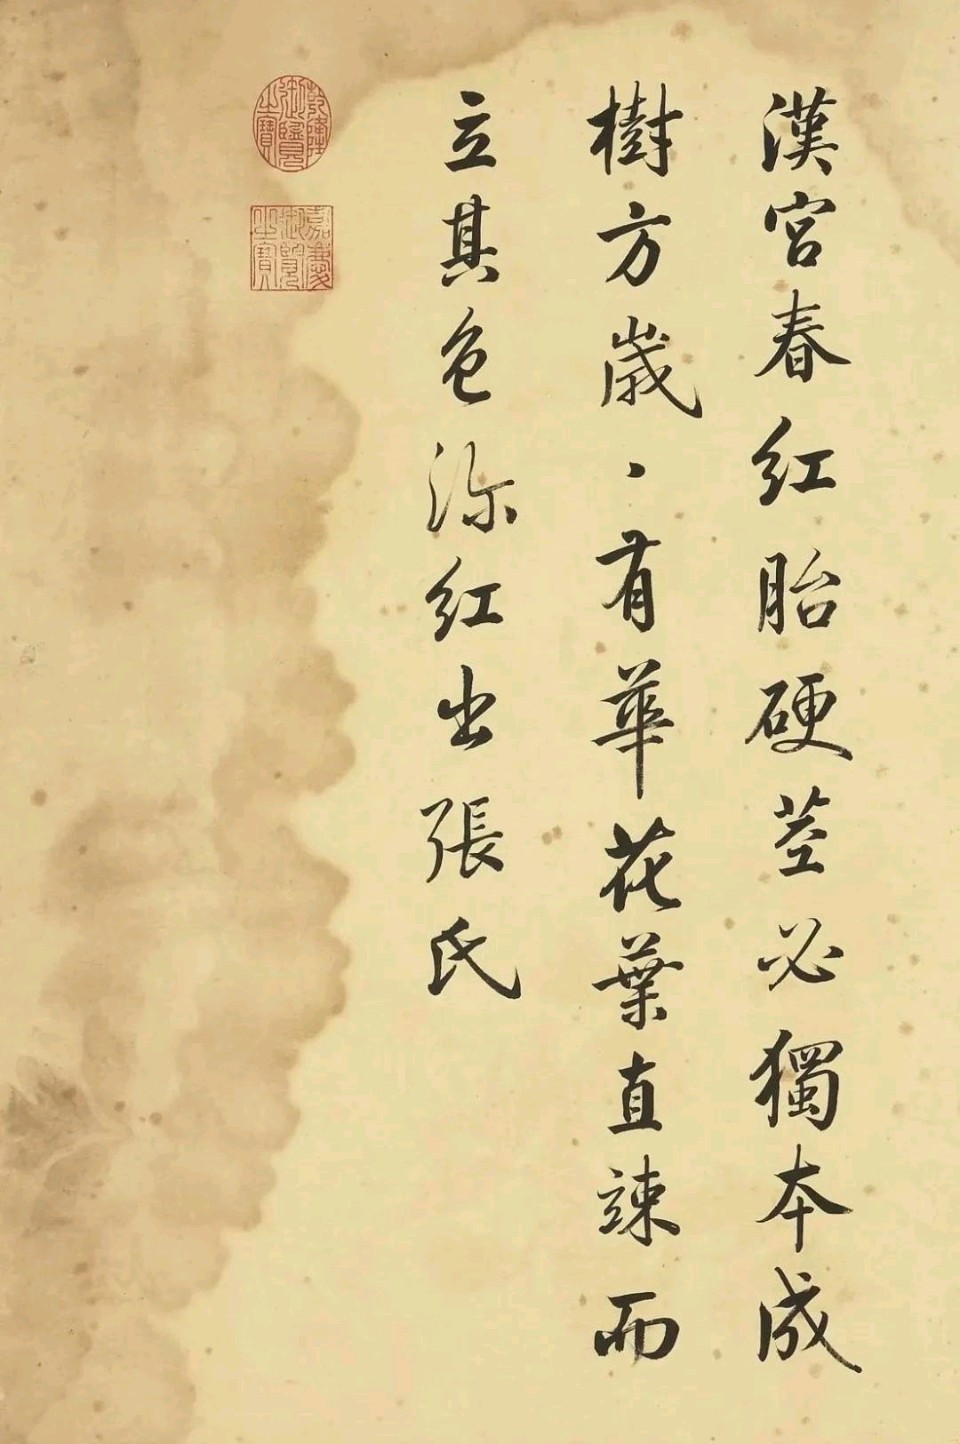 漢宮春紅胎硬莖必獨本成
樹方歲、有華花葉直竦而
立其色深紅出張氏
乾隆御覽之寶
嘉慶御覽之寶